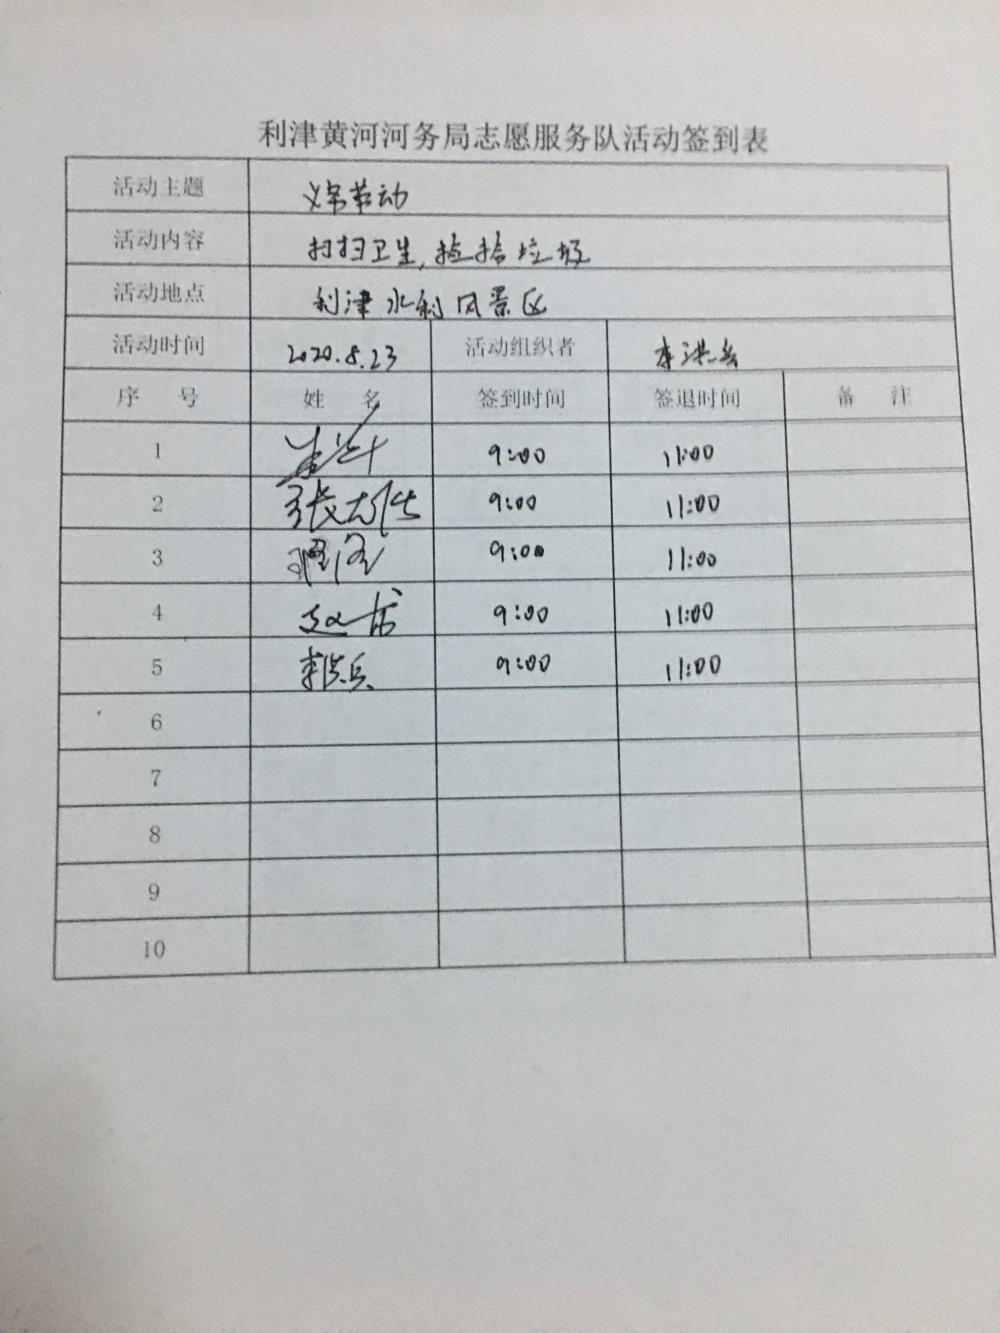 利津黄河河务局志愿服务队活动签到表
活动主题 义务劳动
活动内容 打扫卫生,捡拾垃圾
活动地点 利津水利风景区
活动时间 2020.8.23 活动组织者 李洪兵
序 号 姓 名 签到时间 签退时间 备 注
1 9:00 11:00
2 张志伟 9:00 11:00
3 9:00 11:00
4 9:00 11:00
5 李洪兵 9:00 11:00
6
7
8
9
10